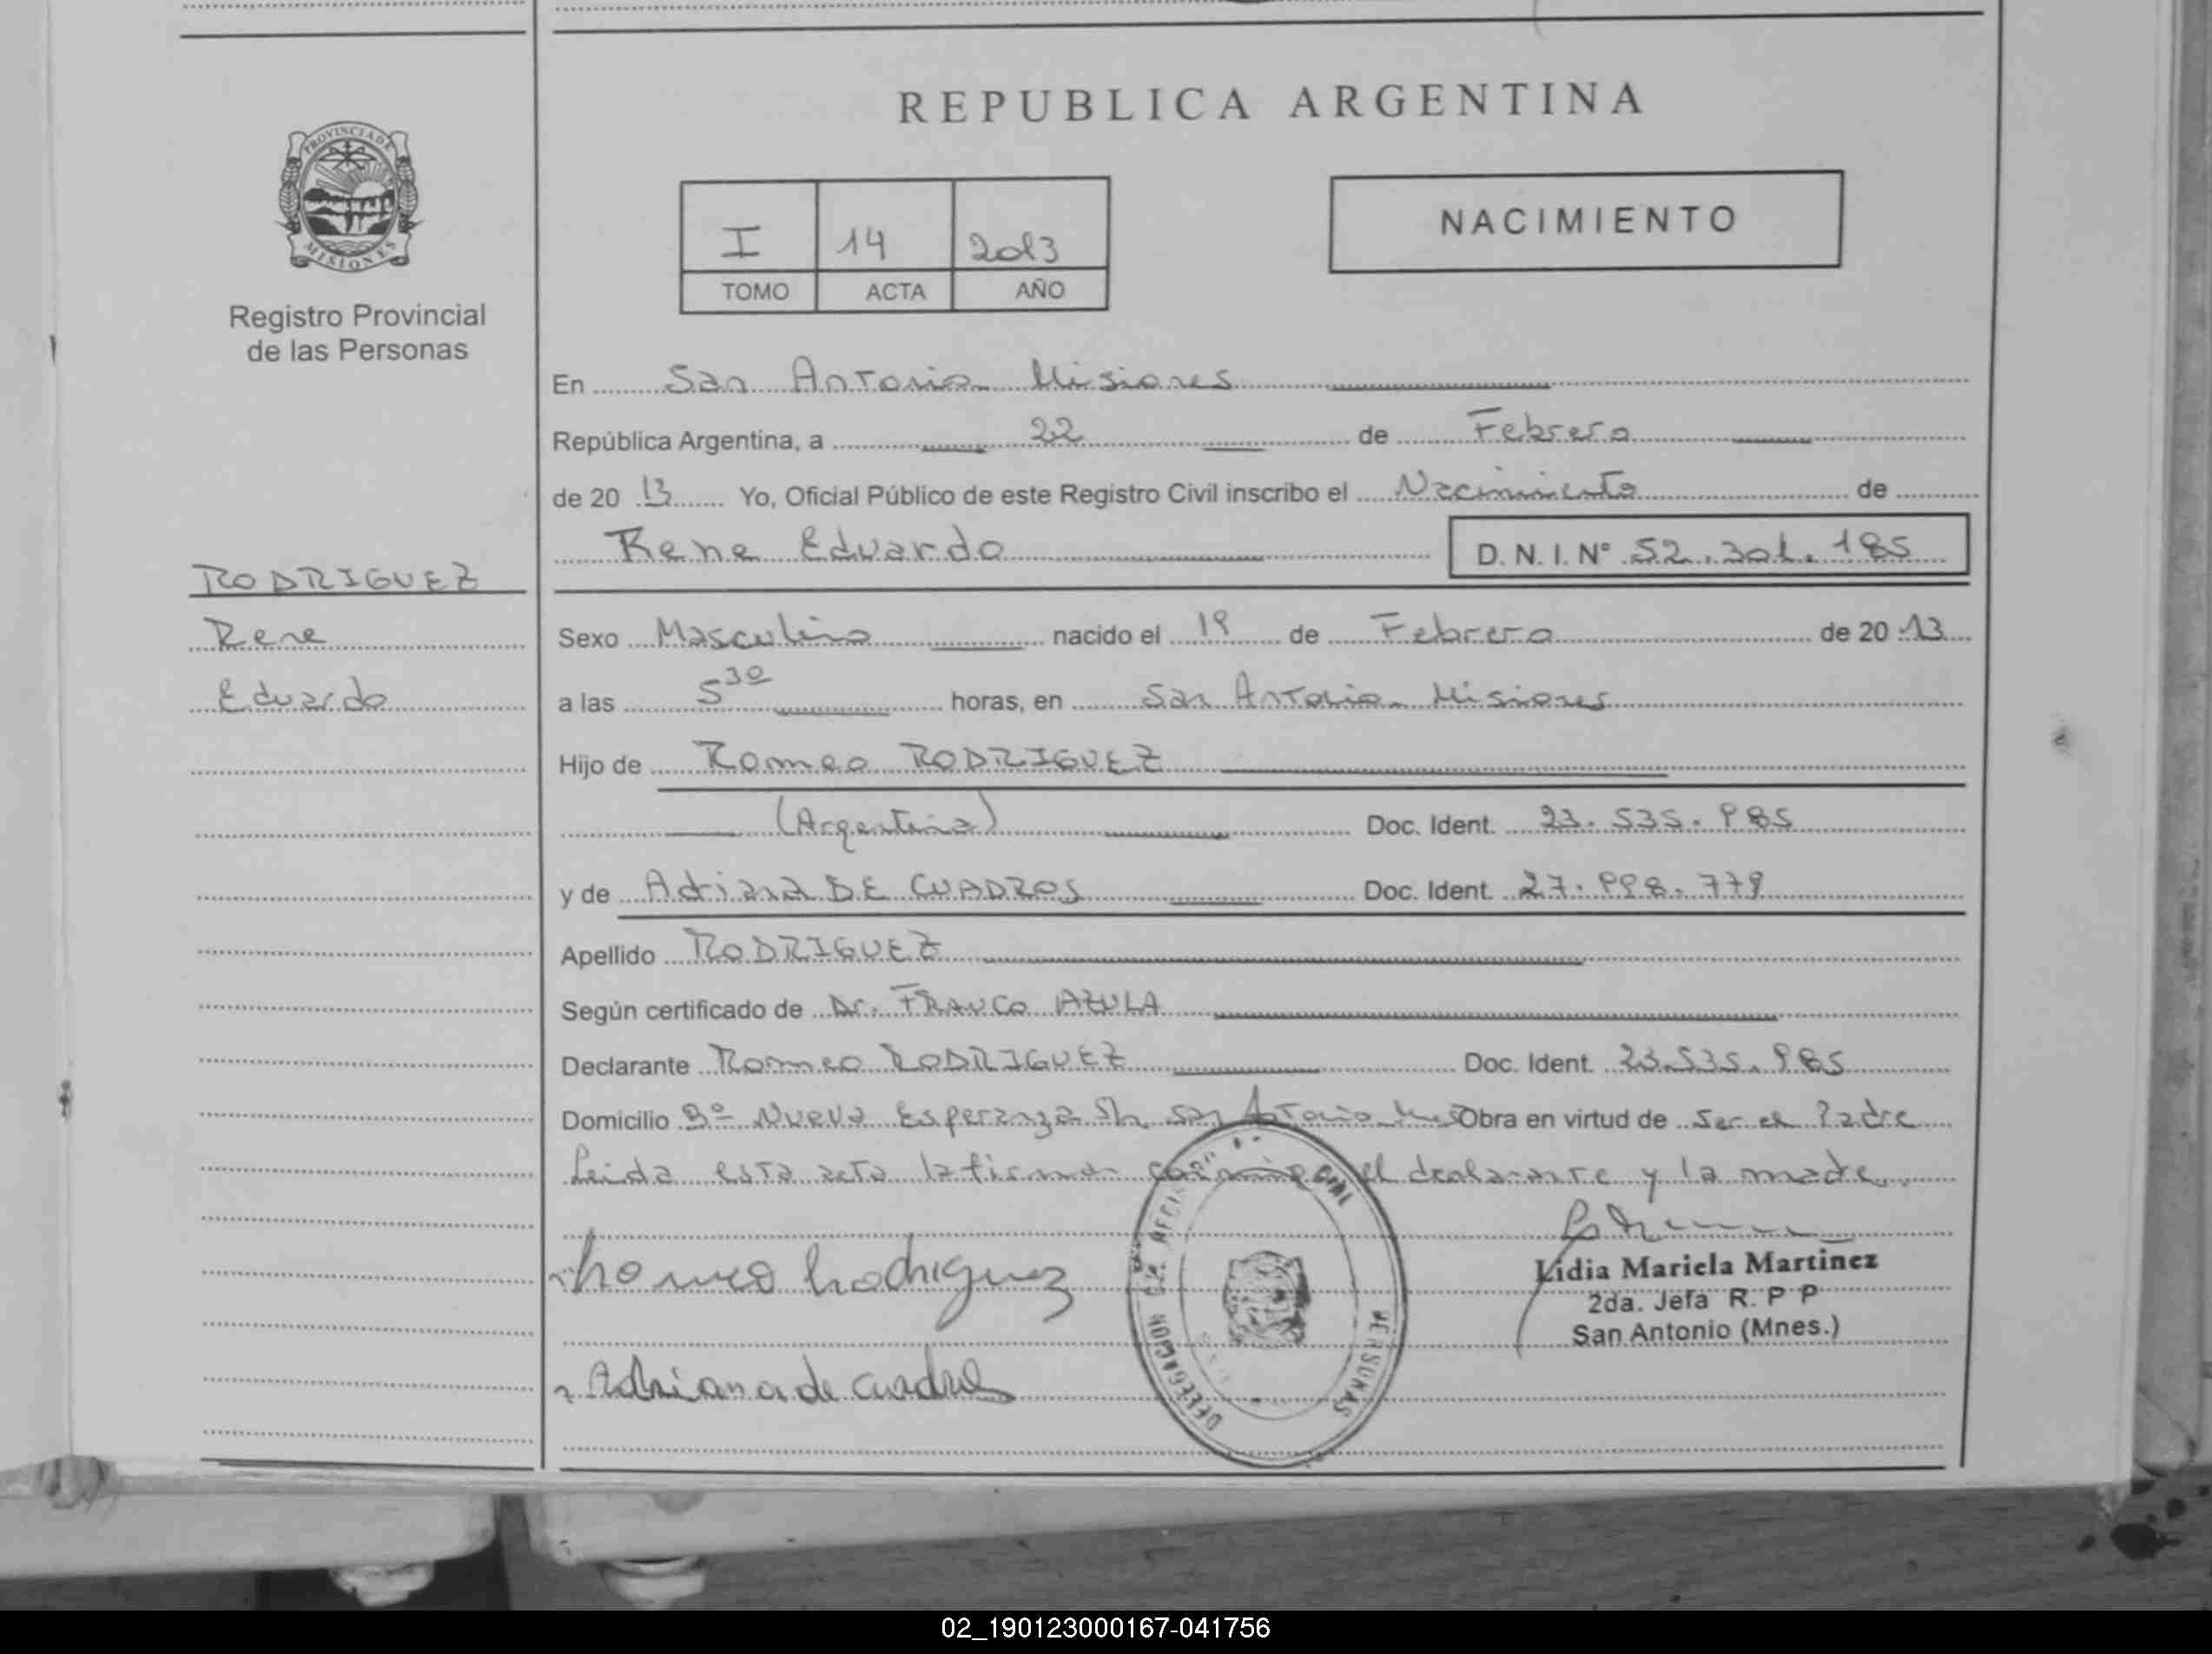 REPUBLICA ARGENTINA
PROVINCIA DE
MISIONES
Registro Provincial
de las Personas
I 14 2013
TOMO ACTA AÑO
NACIMIENTO
En San Antonio Misiones
República Argentina, a 22 de Febrero
de 20 13 Yo, Oficial Público de este Registro Civil inscribo el Nacimiento de
Rene Eduardo D. N. I. N° 52.301.185
RODRIGUEZ
Rene
Eduardo
Sexo Masculino nacido el 19 de Febrero de 20 13
a las 5 30 horas, en San Antonio Misiones
Hijo de Romeo RODRIGUEZ
(Argentina) Doc. Ident. 23.535.985
y de Adriana DE CUADROS Doc. Ident. 27.998.779
Apellido RODRIGUEZ
Según certificado de Dr. FRANCO AZULA
Declarante Romeo RODRIGUEZ Doc. Ident. 23.535.985
Domicilio Bº Nueva Esperanza S/n San Antonio Mnes Obra en virtud de Ser el Padre
Leida esta acta la firman conmigo el declarante y la madre.
Romeo Rodriguez
Lidia Mariela Martinez
2da. Jefa R. P P
San Antonio (Mnes.)
Adriana de cuadros
PERSONAS
02_190123000167-041756